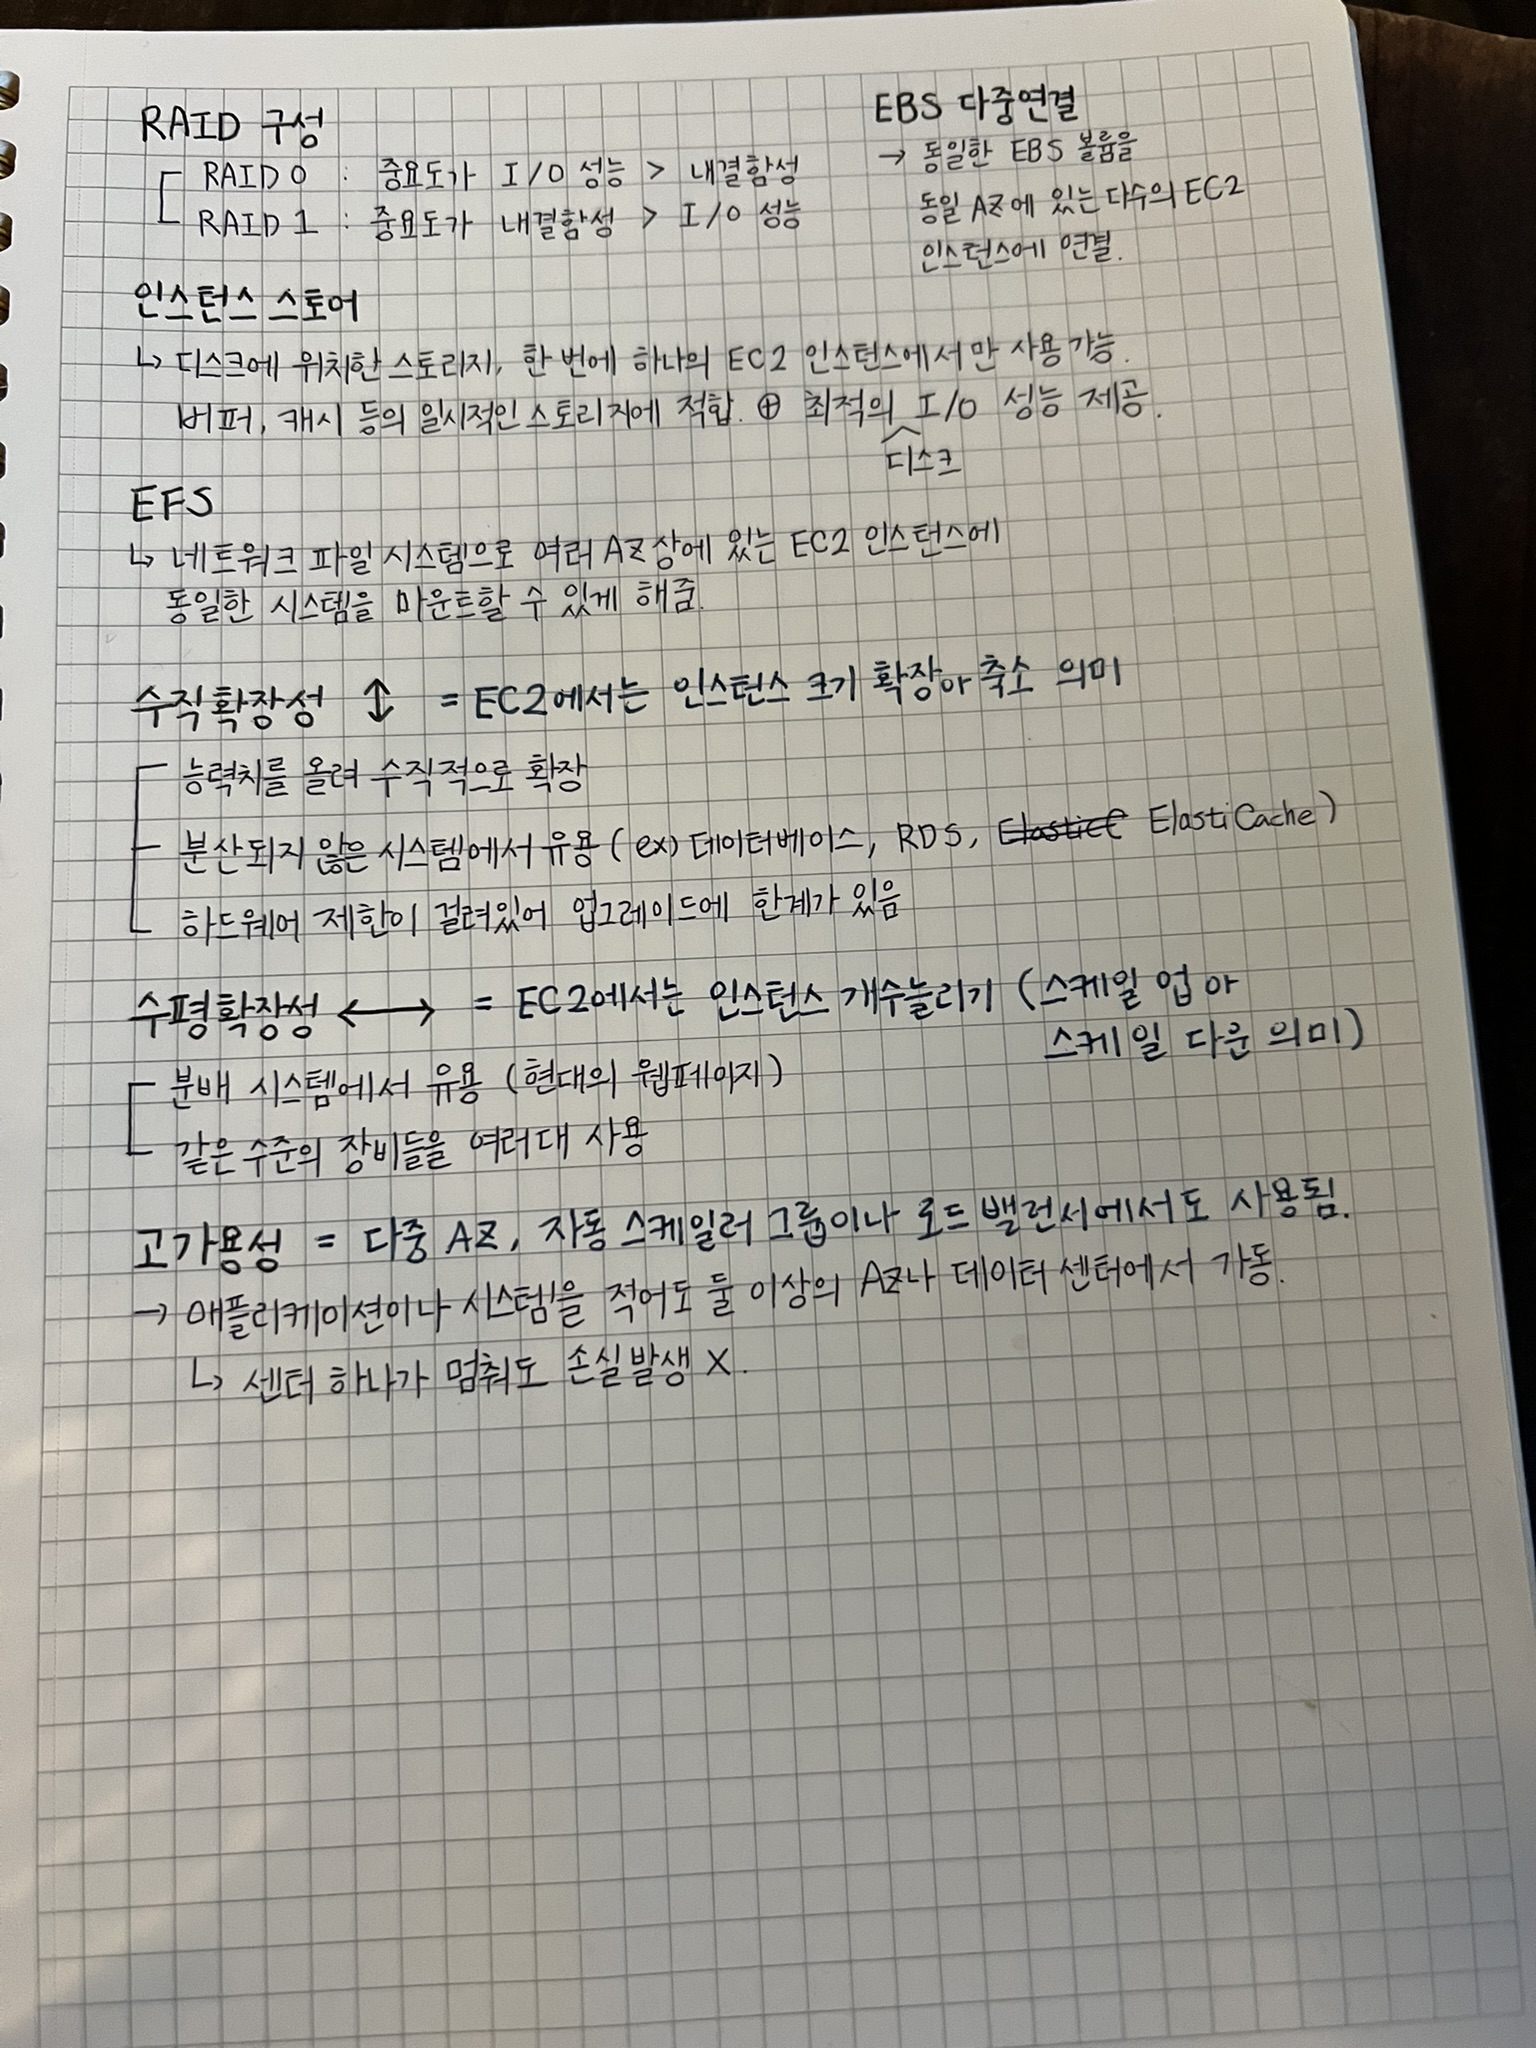 RAID 구성
RAID 0 : 중요도가 I/O 성능 > 내결함성
RAID 1 : 중요도가 내결함성 > I/O 성능
EBS 다중연결
→ 동일한 EBS 볼륨을
동일 AZ에 있는 다수의 EC2
인스턴스에 연결.
인스턴스 스토어
↳ 디스크에 위치한 스토리지, 한 번에 하나의 EC2 인스턴스에서만 사용 가능.
버퍼, 캐시 등의 일시적인 스토리지에 적합. ⊕ 최적의 I/O 성능 제공.
디스크
EFS
↳ 네트워크 파일 시스템으로 여러 AZ상에 있는 EC2 인스턴스에
동일한 시스템을 마운트할 수 있게 해줌.
수직확장성 ↕ = EC2에서는 인스턴스 크기 확장아 축소 의미
능력치를 올려 수직적으로 확장
분산되지 않은 시스템에서 유용 (ex) 데이터베이스, RDS, ElastiCache)
하드웨어 제한이 걸려있어 업그레이드에 한계가 있음
수평확장성 ↔ = EC2에서는 인스턴스 개수늘리기 (스케일 업아
스케일 다운 의미)
분배 시스템에서 유용 (현대의 웹페이지)
같은 수준의 장비들을 여러대 사용
고가용성 = 다중 AZ, 자동 스케일러 그룹이나 로드 밸런서에서도 사용됨.
→ 애플리케이션이나 시스템을 적어도 둘 이상의 AZ나 데이터 센터에서 가동.
↳ 센터 하나가 멈춰도 손실발생 X.